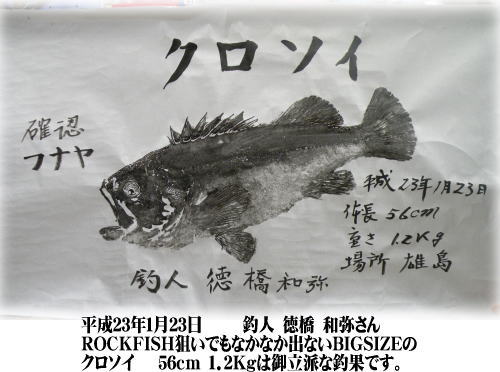 クロソイ
確認
フナヤ
平成23年1月23日
体長 56cm
重さ 1.2Kg
場所 雄島
釣人 徳橋和弥
平成23年1月23日 釣人 徳橋 和弥さん
ROCKFISH狙いでもなかなか出ないBIGSIZEの
クロソイ 56cm 1.2Kgは御立派な釣果です。